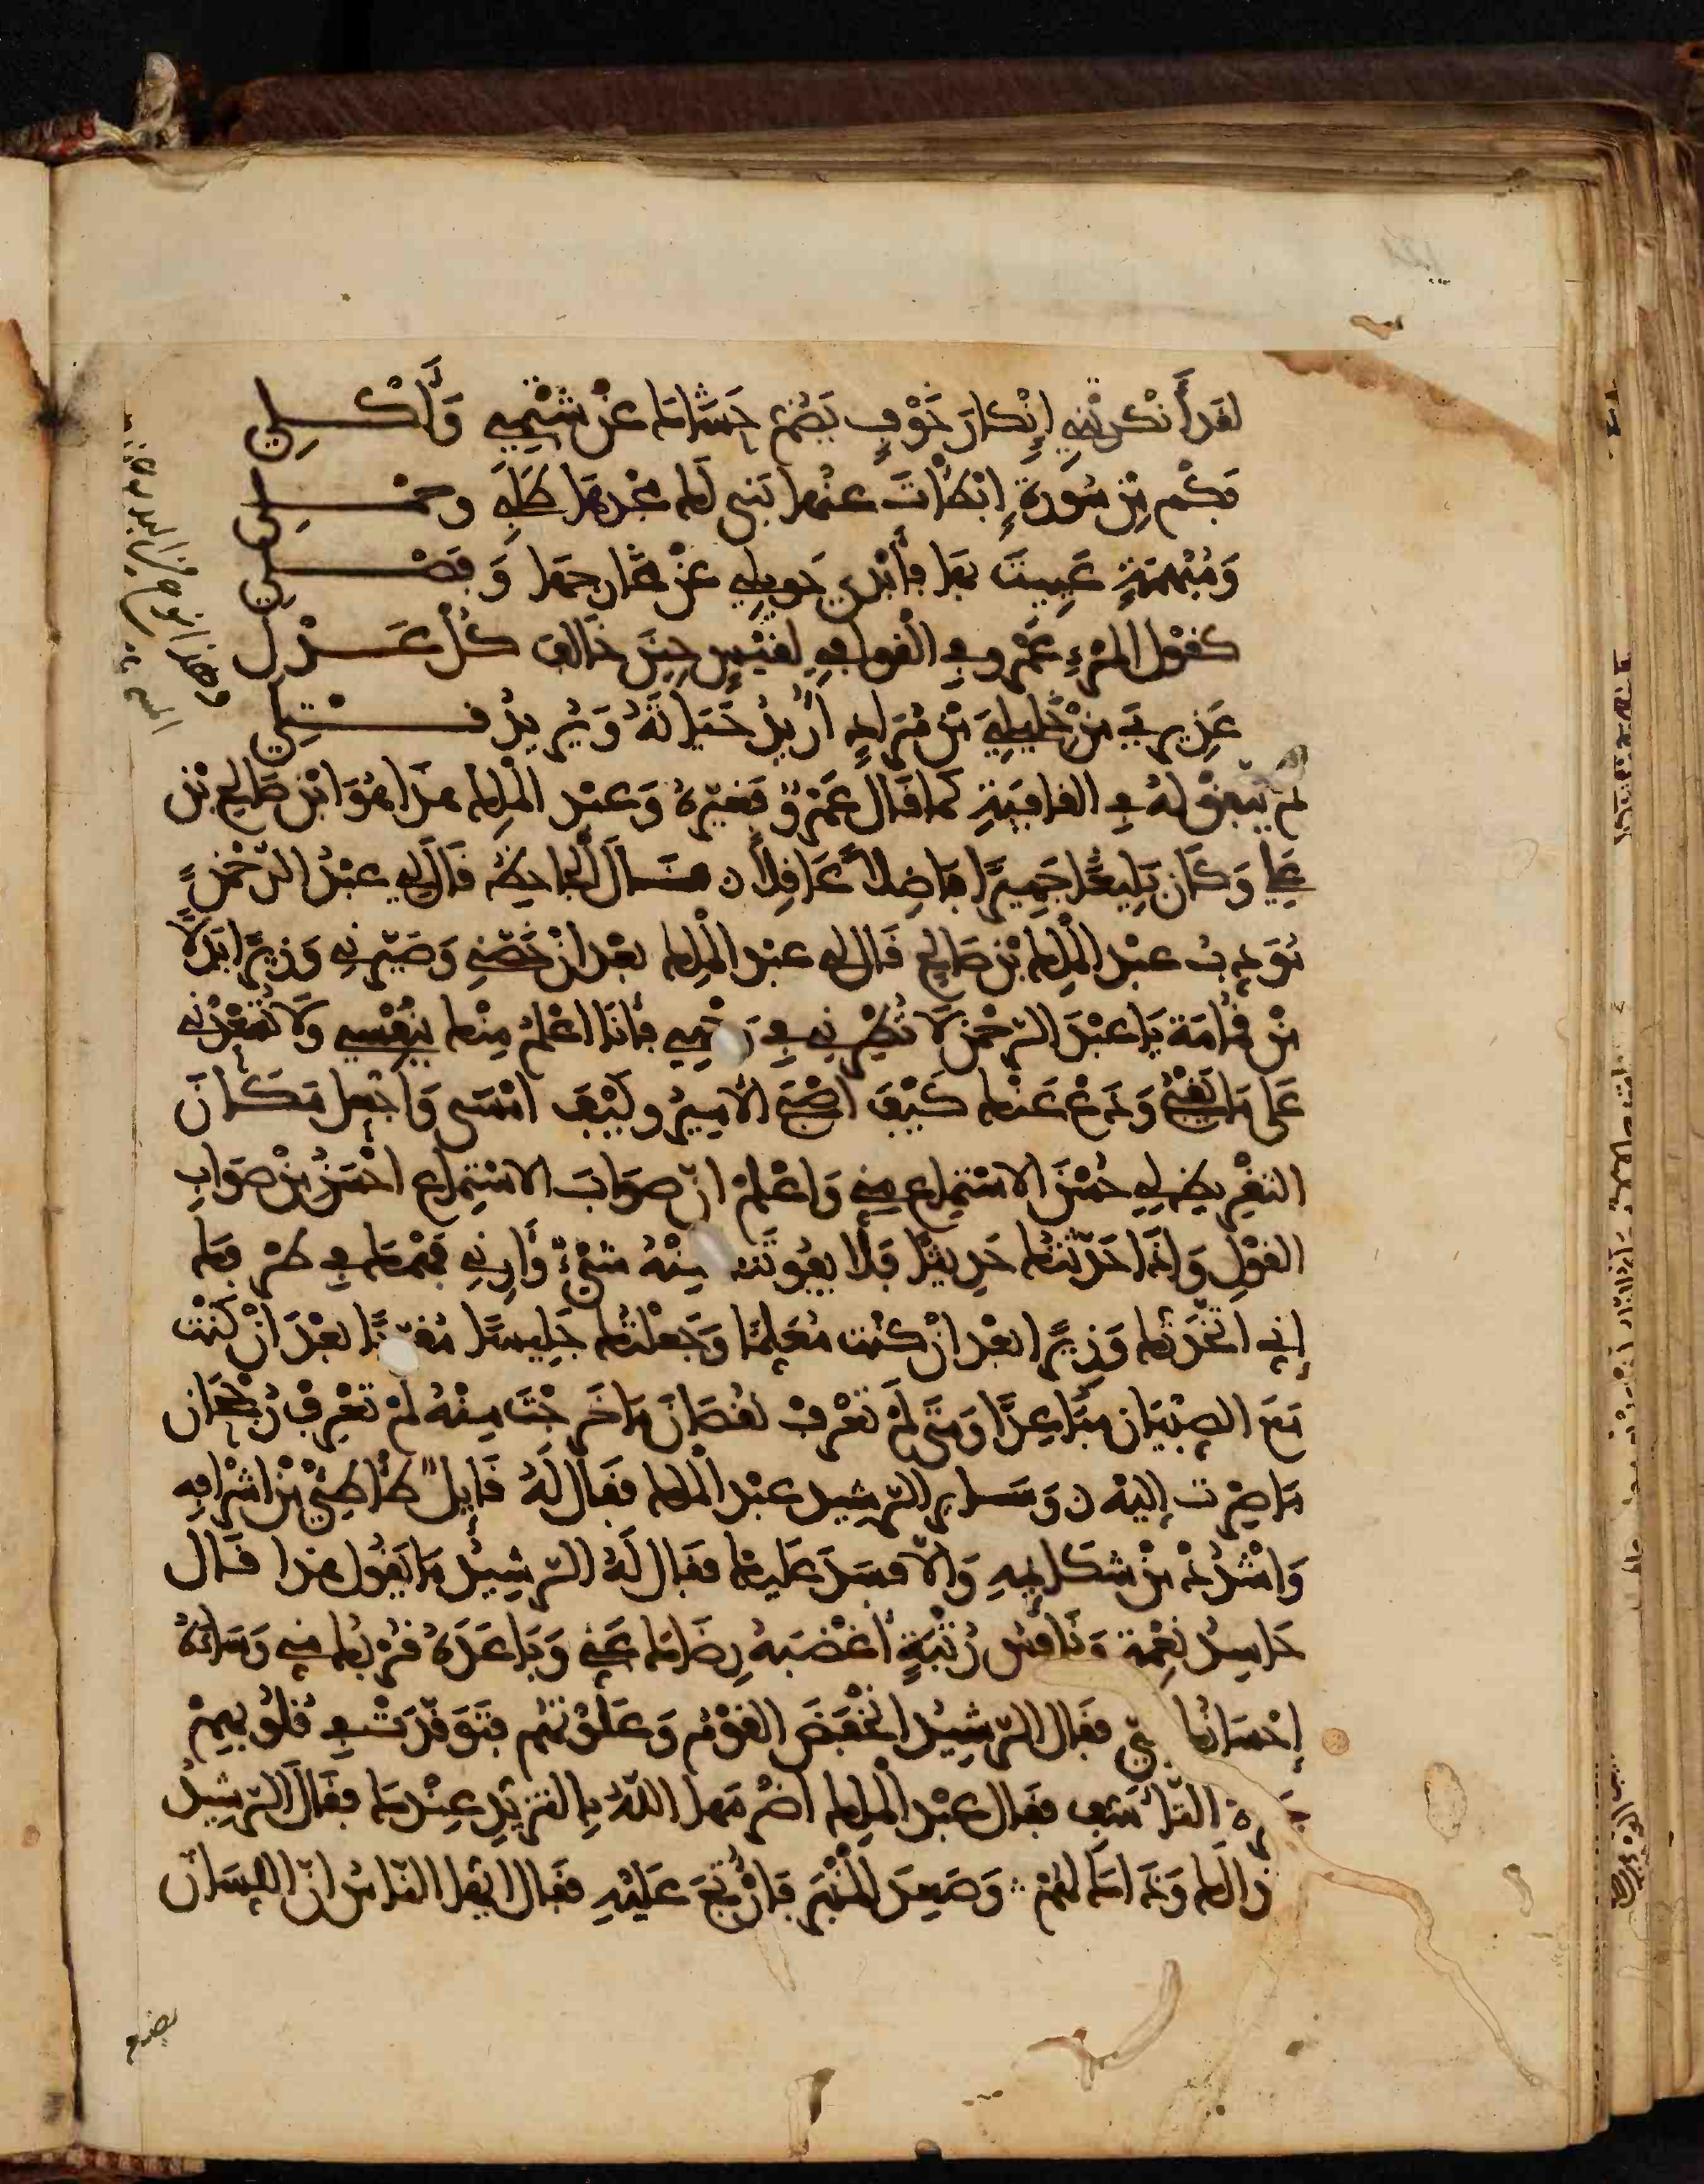 لَقَد أَنْكَرْتَنِي إِنْكَارَ خَوْفٍ يَضُمُّ حَشَاكَ عَنْ شَتْمِي وَأَكْلِي
فَكَمْ مِنْ سُورَةٍ أَبْطَأْتَ عنها بَنَى لَكَ مَجْدَهَا طَلَبِي وحَمْلِي
وَمُبْهَمَةٍ عَيِيتَ بِهَا فَأَبْدَى حَوِيلِي عَنْ مَخَارِجِهَا وَفَضْلِي
كَقَوْلِ المَرْءِ عَمْرٍو فِي الْقَوَافِي لِقَيْسٍ حِينَ خَالَفَ كُلَّ عَذْلِ
عَذِيرِيَ مِنْ خَلِيلِيَ مِنْ مُرَادٍ أُرِيدُ حَيَاتَهُ وَيُرِيدُ قَتْلِي
لم يتفق له في القافية كما قال عَمْرٌو فَغَيَّرَهُ وَعبد الْمَلِك هذَا هُوَ ابْن صَالِح بْن
عَلِي وَكَانَ بَلِيغًا جَهِيرًا فَاضِلًا عَاقِلًا ن قَالَ الجاحظ قَالَ لي عَبْدُ الرَّحْمَنِ
مُؤَدِّبُ عبد الْمَلِك بْن صَالِح قَالَ لي عبد الْمَلِك بَعْدَ أَنْ خَصَّنِي وَصَيَّرَنِي وَزِيرًا بَدَلًا
مِنْ قُمَامَةَ يَا عَبْدَ الرَّحْمَنِ لَا تُطْرِنِي فِي وَجْهِي فَأَنَا أَعْلَمُ مِنْكَ بِنَفْسِي وَلَا تُسْعِدْنِي
عَلَى مَا يَقْبُحُ وَدَعْ عَنْكَ كَيْفَ أَصْبَحَ الأَمِيرُ وكَيْفَ أَمْسَى وَاجْعَلْ مَكَانَ
التَّقْرِيظِ لِي حُسْنَ الاسْتِمَاعِ مِنِّي وَاعْلَمْ أَنَّ صَوَابَ الاسْتِمَاعِ أَحْسَنُ مِنْ صَوَابِ
القَوْلِ وَإِذَا حَدَّثْتُكَ حَدِيثًا فَلَا يَفُوتَنَّكَ مِنْهُ شَيْءٌ وَأَرِنِي فَهْمَكَ فِي طَرْفِكَ
إِنِّي اتَّخَذْتُكَ وَزِيرًا بَعْدَ أَنْ كُنْتَ مُعَلِّمًا وَجَعَلْتُكَ جَلِيسًا مُقَرَّبًا بَعْدَ أَنْ كُنْتَ
مَعَ الصِّبْيَانِ مُبَاعَدًا وَمَتَى لَمْ تَعْرِفْ نُقْصَانَ مَا خَرَجْتَ مِنْهُ لَمْ تَعْرِفْ رُجْحَانَ
مَا صِرْتَ إِلَيْهِ ن وَسَايَرَ الرَّشِيدَ عَبْدُ الْمَلِك فَقَالَ لَهُ قَائِلٌ طَأْطِئْ مِنْ أَشْرَافِهِ
وَاشْدُدْ مِنْ شَكَائِمِهِ وَإِلَّا فَسَدَ عَلَيْكَ فَقَالَ لَهُ الرَّشِيدُ مَا يَقُولُ هَذَا قَالَ
حَاسِدُ نِعْمَةٍ وَنَافِسُ رُتْبَةٍ أَغْضَبَهُ رِضَاكَ عَنِّي وَبَاعَدَهُ قُرْبُكَ مِنِّي وَسَاءَهُ
إِحْسَانُكَ إِلَيَّ فَقَالَ الرَّشِيدُ انْخَفَضَ القَوْمُ وَعَلَوْتَهُمْ فَتَوَقَّدَتْ فِي قُلُوبِهِمْ
جَمْرَةُ التَّأَسُّفِ فَقَالَ عَبْدُ الْمَلِك أَضْرَمَهَا اللَّهُ بِالتَّزَيُّدِ عِنْدَكَ فَقَالَ الرَّشِيدُ
هَذَا لَكَ وَذَاكَ لَهُمْ وَصَعِدَ الْمِنْبَرَ فَأُرْتِجَ عَلَيْهِ فَقَالَ أَيُّهَا النَّاسُ إِنَّ اللِّسَانَ
بضعة